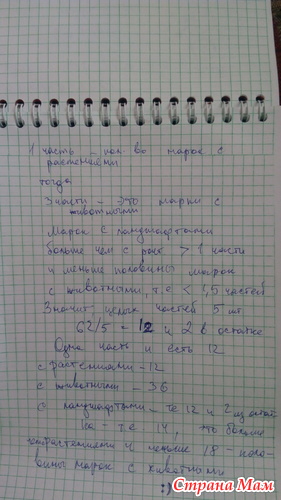 1 часть - кол во марок с
растениями
тогда
3 части - это марки с
животными
Марок с ландшафтами
больше чем с раст > 1 части
и меньше половины марок
с животными, т.е < 1,5 частей
Значит целых частей 5 шт
62/5 = 12 и 2 в остатке
Одна часть и есть 12
с растениями - 12
с животными - 36
с ландшафтами - те 12 и 2 из остат
ка - т.е 14, что больше
растениями и меньше 18 - поло-
вины марок с животными
:)
Страна Мам